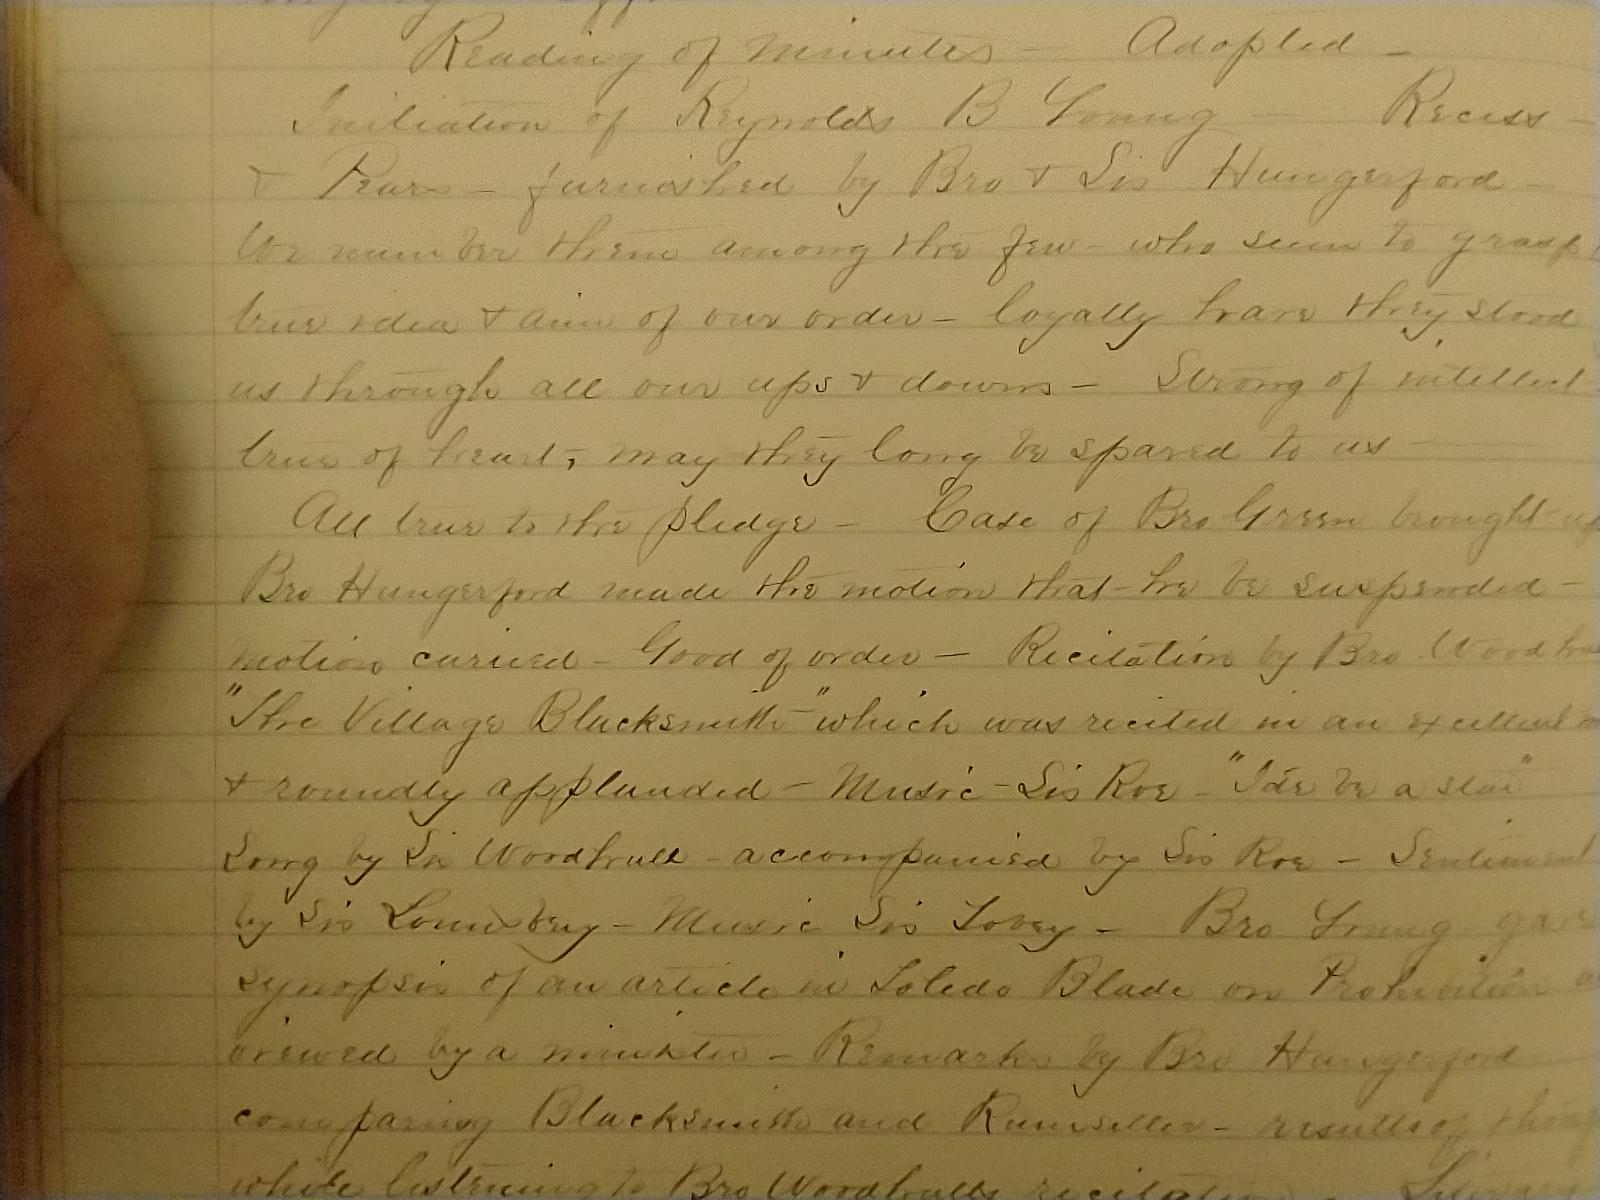 Reading of minutes — Adopted —
Initiation of Reynolds B Young — Recess —
+ Pears — furnished by Bro + Sis Hungerford —
We number them among the few — who seem to grasp
true idea + aim of our order — loyally have they stood
us through all our ups + downs — Strong of intellect
true of heart, may they long be spared to us —
All true to the pledge — Case of Bro Green brought up
Bro Hungerford made the motion that he be suspended —
motion carried — Good of order — Recitation by Bro Woodhu
"The Village Blacksmith" which was recited in an excellent
+ roundly applauded — Music — Sis Roe — "I'de be a star"
Song by Sis Woodhull — accompanied by Sis Roe — Sentiment
by Sis Lounsbery — Music Sis Tobey — Bro Young gave
synopsis of an article in Toledo Blade on Prohibition as
viewed by a minister — Remarks by Bro Hungerford
comparing Blacksmith and Rumseller — results of
while listening to Bro Woodhulls recitation —